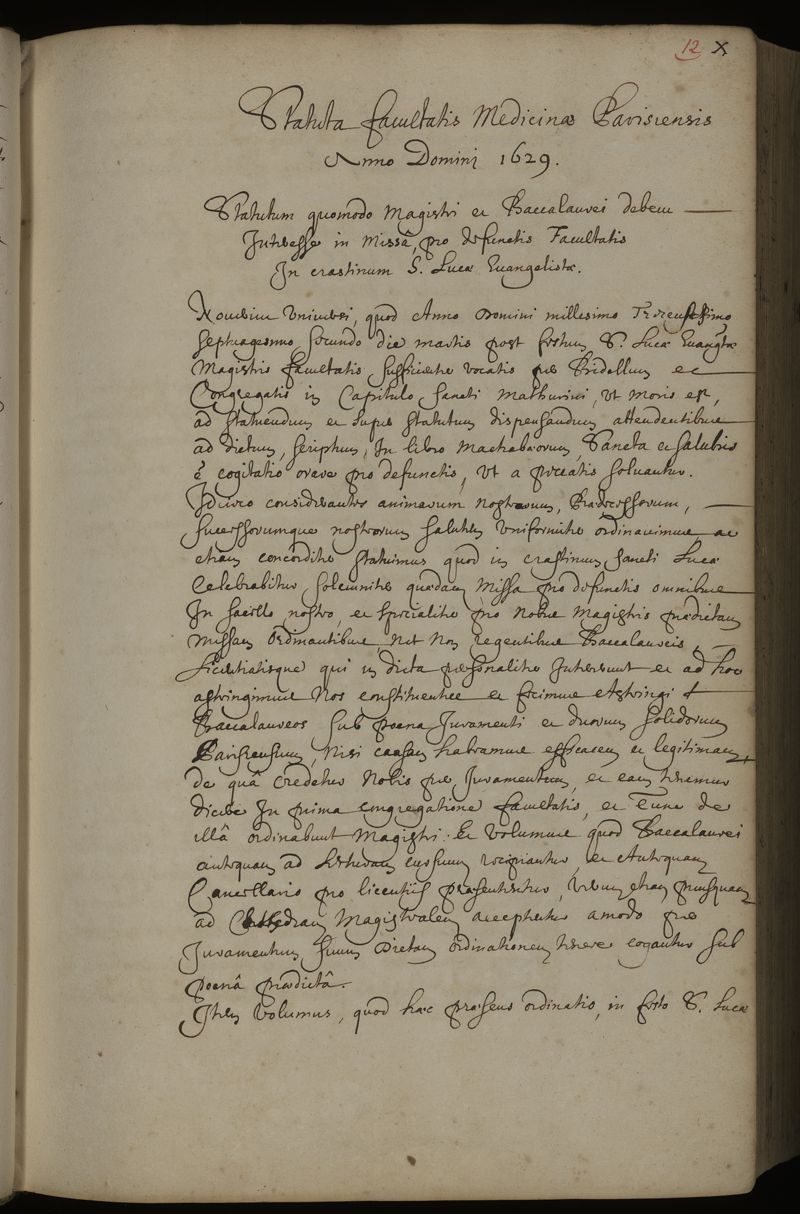 12 X
Statuta facultatis Medicinæ Parisiensis
Anno Domini 1629.
Statutum quomodo Magistri et Baccalaurei debent
Interesse in Missâ, pro defunctis Facultatis
In crastinum S. Lucæ Euangelistæ.
Noverint Vniversi, quod Anno Domini millesimo Trecentesimo
septuagesimo secundo die martis post festum S. Lucæ Euangtæ
Magistris facultatis sufficienter vocatis per Bidellum et
Congregatis in Capitulo sancti Mathurini, Vt moris est,
ad statuendum et super statutum dispensandum attendentibus
ad dictum, scriptum, In libro Machabæorum, Sancta et salubris
ê cogitatio orare pro defunctis, Vt a peccatis solvantur.
Idcirco considerantes animarum nostrarum, Prædecessorum,
successorumque nostrorum salutem Vniformiter ordinavimus ac
etiam concorditer statuimus quod in crastinum sancti Lucæ
Celebrabitur solemniter quædam Missa pro defunctis omnibus
In sacello nostro, et specialiter pro Nobis Magistris prædictam
missam ordinantibus, nec Non regentibus Baccalaureis,
licentiatisque qui in dicta personaliter Intererunt et ad hoc
astringimus Nos constituentes et facimus Astringi
Baccalaureos sub poena Juramenti et duorum solidorum
Parisiensium, Nisi causam habeamus efficacem et legitimam,
de quâ credetur Nobis per Juramentum, et eam tenemur
dicere In prima congregatione facultatis, et Tunc de
illâ ordinabunt Magistri. Et Volumus quod Baccalaurei
antequam ad cursum recipiantur, et Antequam
Cancellario pro licentiis præsententur, etiam priusquam
ad Cathedram Magistralem acceptentur amodo per
Juramentum suum Dictam ordinationem tenere cogantur sub
poenâ prædictâ.
Item Volumus, quod hæc præsens ordinatio, in festo S. Lucæ